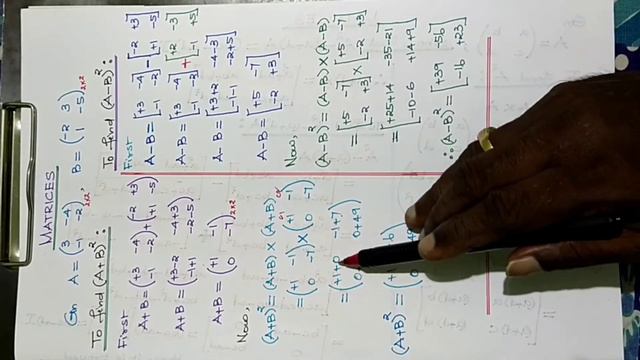 MATRICES
Gn A = (3 -4
-1 -2)2×2, B = (-2 3
1 -5)2×2
To find (A+B)²:
First
A+B = (+3 -4
-1 -2) + (-2 +3
+1 -5)
A+B = (+3-2 -4+3
-1+1 -2-5)
A+B = (+1 -1
0 -7)2×2
Now,
(A+B)² = (A+B) × (A+B)
= (+1 -1
0 -7) × (+1 -1
0 -7)
= (+1+0 -1+7
(A+B)² =
To find (A-B)²:
First
A-B = [+3 -4
-1 -2] - [-2 +3
+1 -5]
A-B = [+3 -4
-1 -2] + [+2 -3
-1 +5]
A-B = [+3+2 -4-3
-1-1 -2+5]
A-B = [+5 -7
-2 +3]
Now,
(A-B)² = (A-B) × (A-B)
= [+5 -7
-2 +3] × [+5 -7
-2 +3]
= [+25+14 -35-21
-10-6 +14+9]
∴ (A-B)² = [+39 -56
-16 +23]